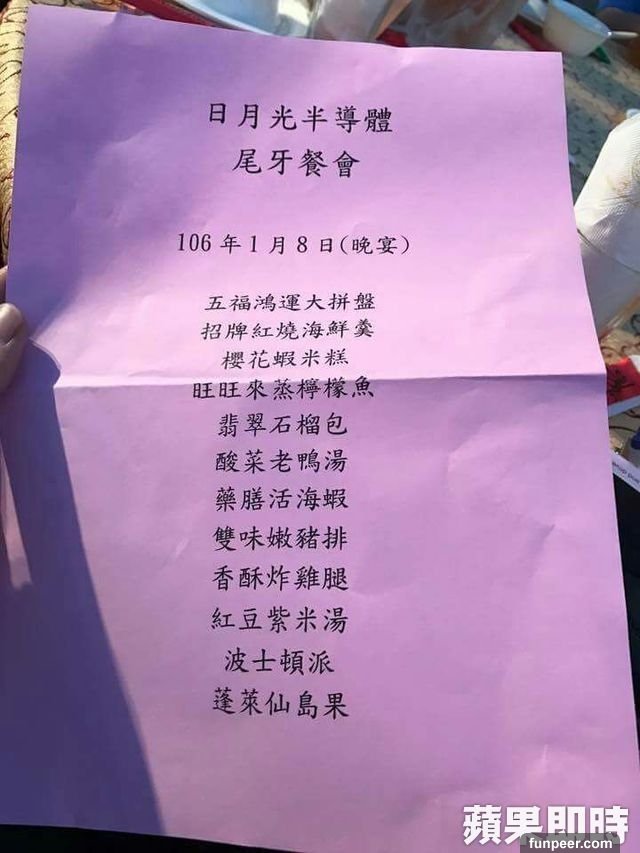 日月光半導體
尾牙餐會
106年1月8日(晚宴)
五福鴻運大拼盤
招牌紅燒海鮮羹
櫻花蝦米糕
旺旺來蒸檸檬魚
翡翠石榴包
酸菜老鴨湯
藥膳活海蝦
雙味嫩豬排
香酥炸雞腿
紅豆紫米湯
波士頓派
蓬萊仙島果
蘋果即時
funpeer.com